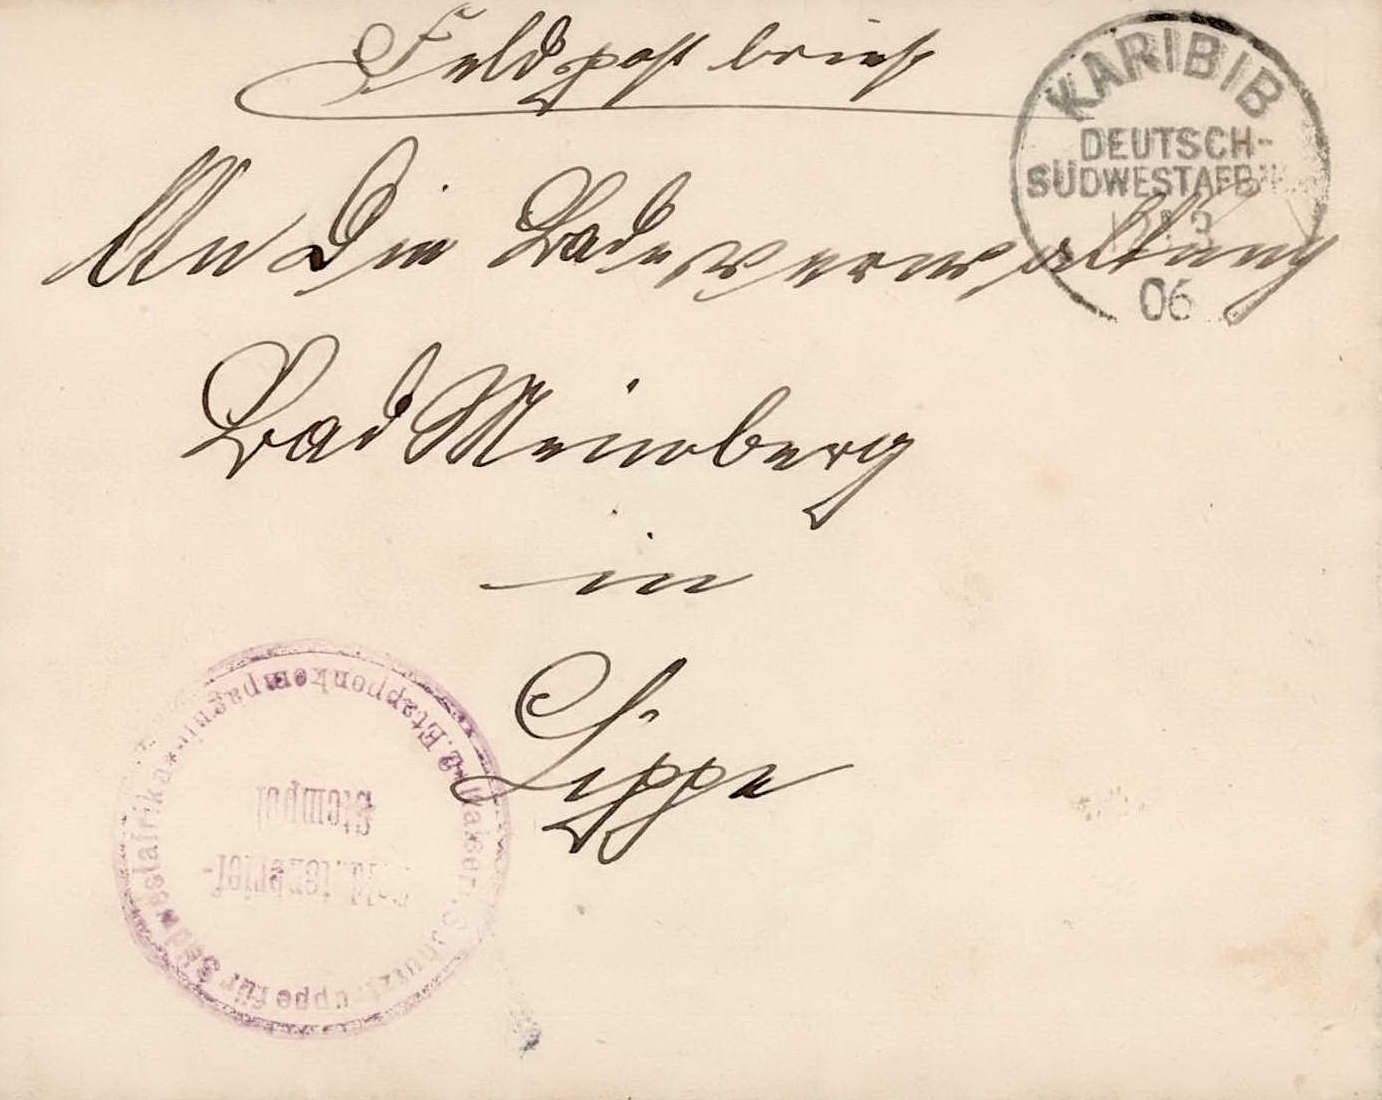 Feldpostbrief
KARIBIB
DEUTSCH-
SÜDWESTAFRIKA
06
An Die Badeverwaltung
Bad Meinberg
in
Lippe
Kaiserl. Schutztruppe für Südwestafrika * 2. Etappenkompagnie *
Soldatenbrief-
Stempel